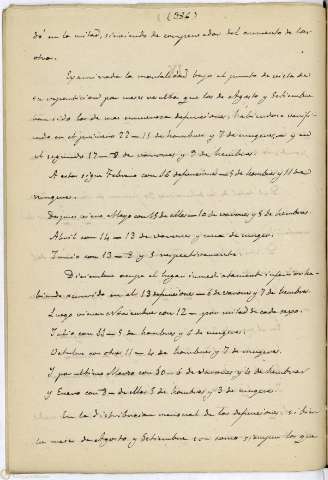 (336)
dó en la mitad, sirviendo de compensador del aumento de las
otra.
Examinada la mortalidad bajo el punto de vista de
su repartición por meses resulta que los de Agosto y Setiembre
han sido los de mas numerosas defunciones, habiéndose verifi-
cado en el primero 22 - 15 de hombres y 7 de mugeres, y en
el segundo 17 - 8 de varones y 9 de hembras.
A estos sigue Febrero con 16 defunciones - 5 de hombres y 11 de
mugeres.
Despues viene Mayo con 15 de ellas - 10 de varones y 5 de hembras
Abril con 14 - 13 de varones y una de muger.
Junio con 13 - 8 y 5 respectivamente.
Diciembre ocupa el lugar inmediatamente inferior ha-
biendo ocurrido en el 13 defunciones - 6 de varones y 7 de hembras.
Luego viene Noviembre con 12 - por mitad de cada sexo.
Julio con 11 - 5 de hombres y 6 de mugeres.
Octubre con otras 11 - 4 de hombres y 7 de mugeres.
Y por ultimo Marzo con 10 - 6 de varones y 4 de hembras
y Enero con 8 - de ellas 5 de hombres y 3 de mugeres.
En la distribucion mensual de las defunciones, si bien
los meses de Agosto y Setiembre son como siempre los que